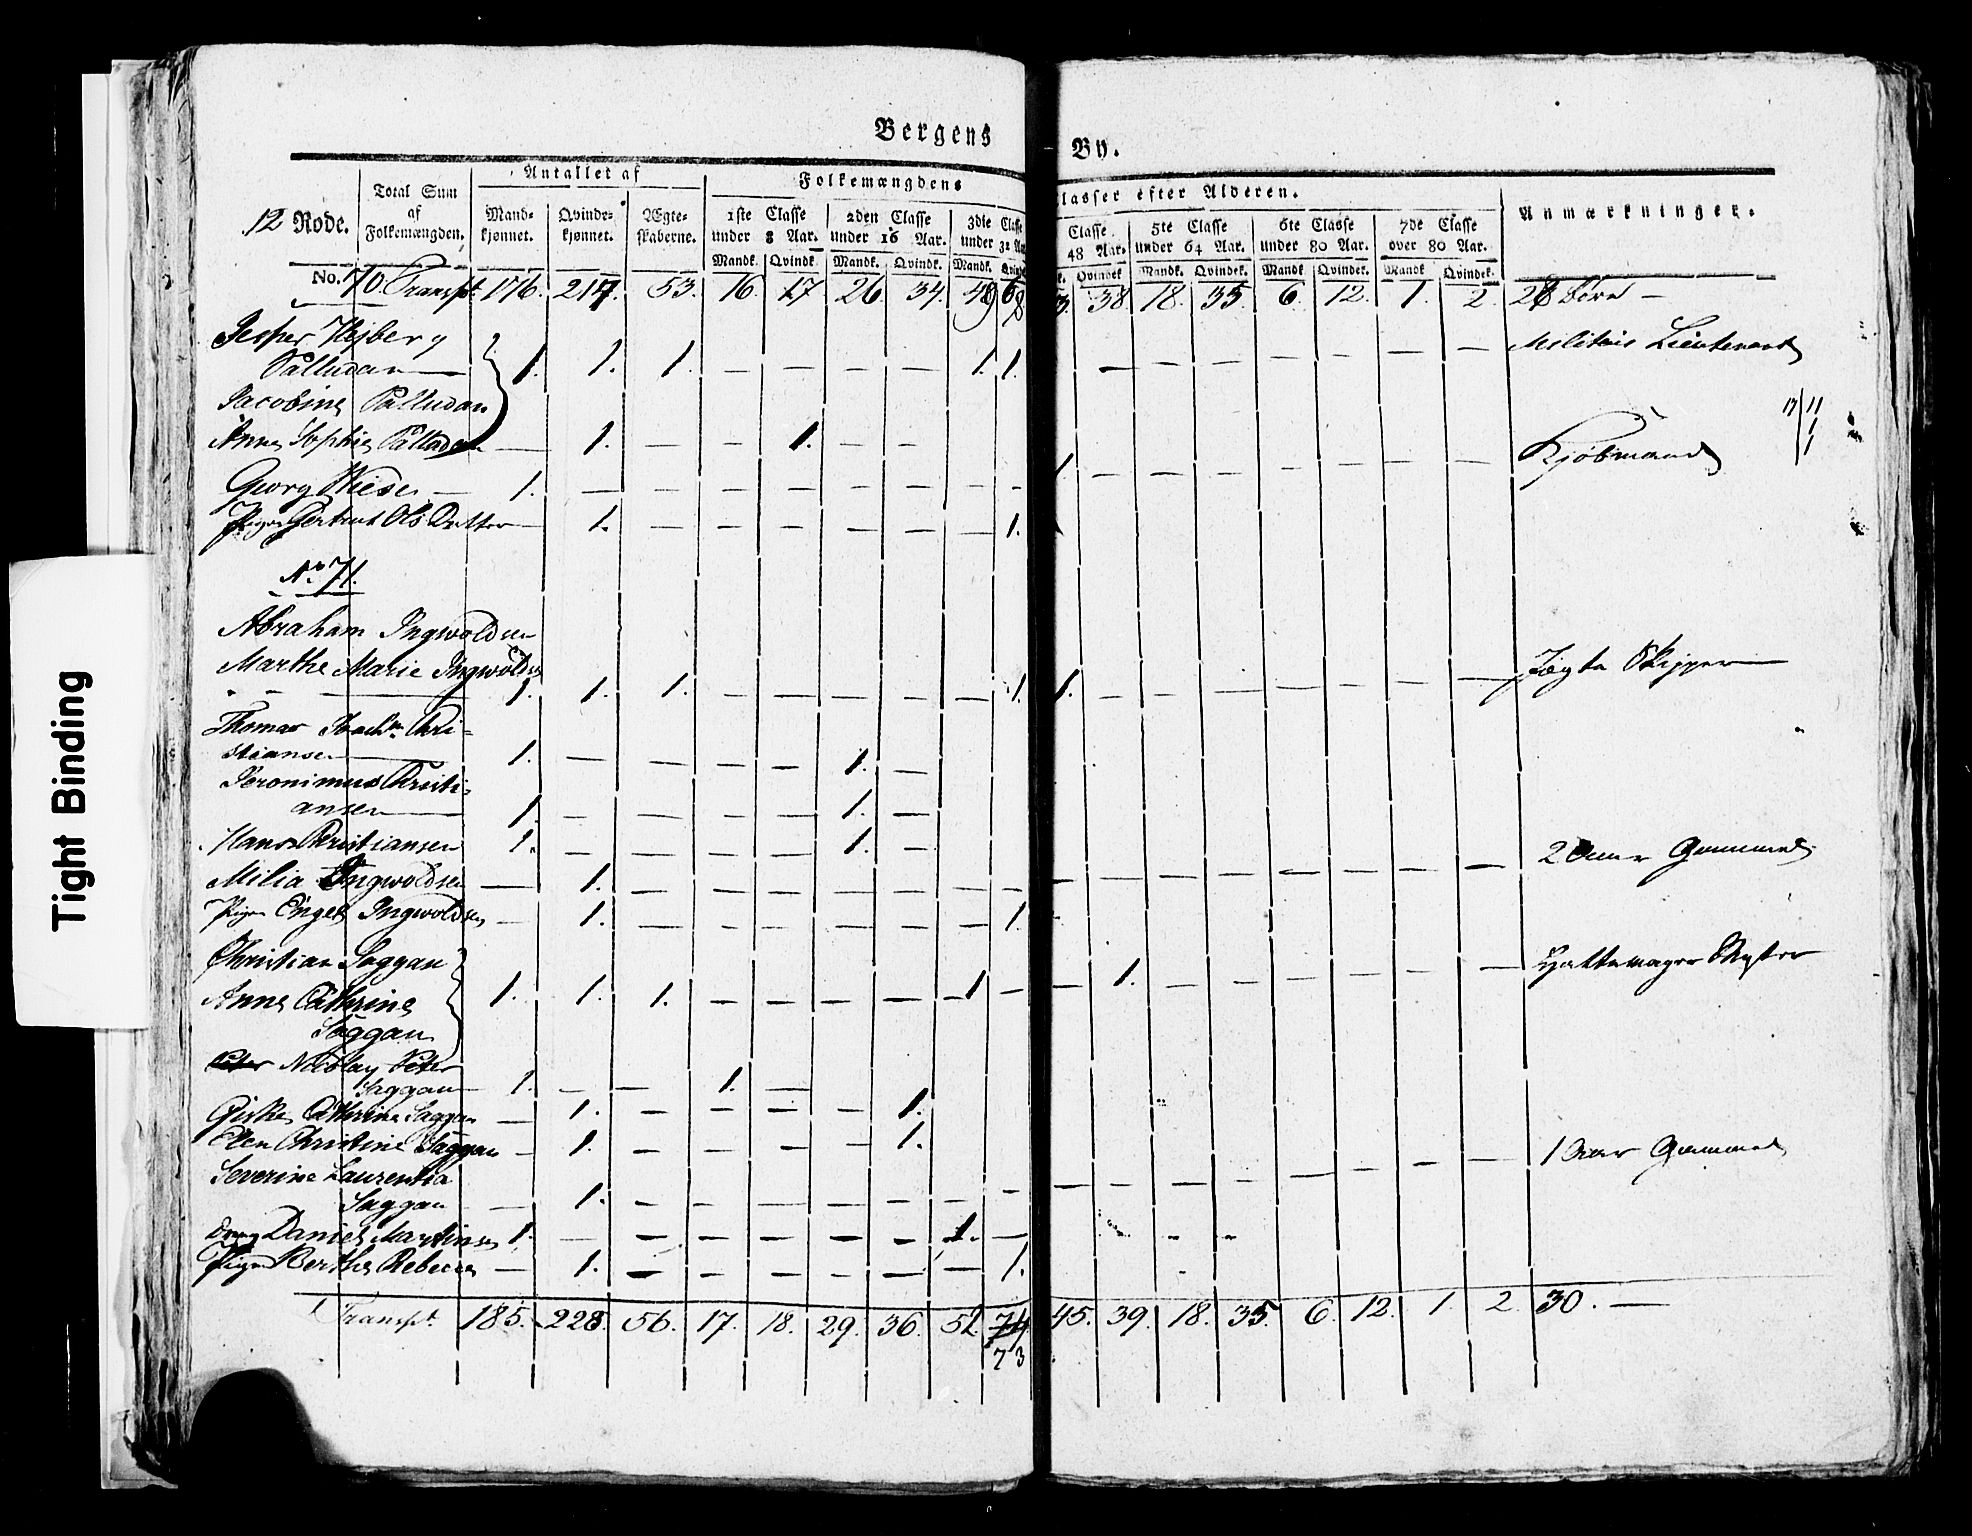 Bergens By.
12 Rode.
Total Sum af Folkemængden.
Antallet af
Mandkjønnet. Qvindekjønnet. Ægteskaberne.
Folkemængdens Classer efter Alderen.
1ste Classe under 8 Aar. 2den Classe under 16 Aar. 3die Classe under 32 Aar. Classe 48 Aar. 5te Classe under 64 Aar. 6te Classe under 80 Aar. 7de Classe over 80 Aar.
Mandk. Qvindk. Mandk. Qvindk. Mandk. Qvindk. Qvindek. Mandk. Qvindek. Mandk. Qvindek. Mandk. Qvindek.
Anmærkninger.
No. 70. Transpt. 176. 217. 53. 16. 17 26. 34. 38. 18. 35. 6. 12. 1. 2. 28 Børn —
Jesper Hejberg
Palludan — 1. 1. 1. — — — — 1. 1. — — — — — — — Militair Lieutenant
Jacobine Palludan
Anne Sophie Palludan — 1. — — 1. — —
Georg Wiese — 1. — — — — — — — — 1 — — — — — — — Kjøbmand
Pigen Gertrud Ols Datter — 1. — — — — — — 1.
17/11
1
1
No 71.
Abraham Ingwoldsen
Marthe Marie Ingwoldsen
1. 1. 1. — — — — — 1. 1. — — — — — — — Jægte Skipper —
Thomas Joachm. Chri-
stiansen — 1. — — — — 1. —
Jeronimus Christi-
ansen — 1. — — — — 1. —
Hans Christiansen 1. — — — — 1. —
Milia Ingwoldsen — 1. — — — — — — — — — — — — — — — 2 Aar Gammel
Pigen Engel Ingwoldsen — 1. — — — — — — 1.
Christian Saggau
Anne Cathrine 1. 1. 1. — — — — 1 — — 1. — — — — — — Hattemager Mester
Saggau
Nicolay Peter
Saggau — 1. — — 1. —
Giske Cathrine Saggau — 1. — — — — 1.
Elen Christine Saggau — 1. — — — — 1.
Severine Laurentia
Saggau — — 1. — — — — — — — — — — — — — — — 1 Aar Gammel
Dreng Daniel Martinsen 1. — — — — — — 1. —
Pigen Berthe Rebecca — 1. — — — — — — 1.
Transpt. 185. 228. 56. 17. 18. 29. 36. 52. 74 45. 39. 18. 35. 6. 12. 1. 2. 30. —
73
Tight Binding